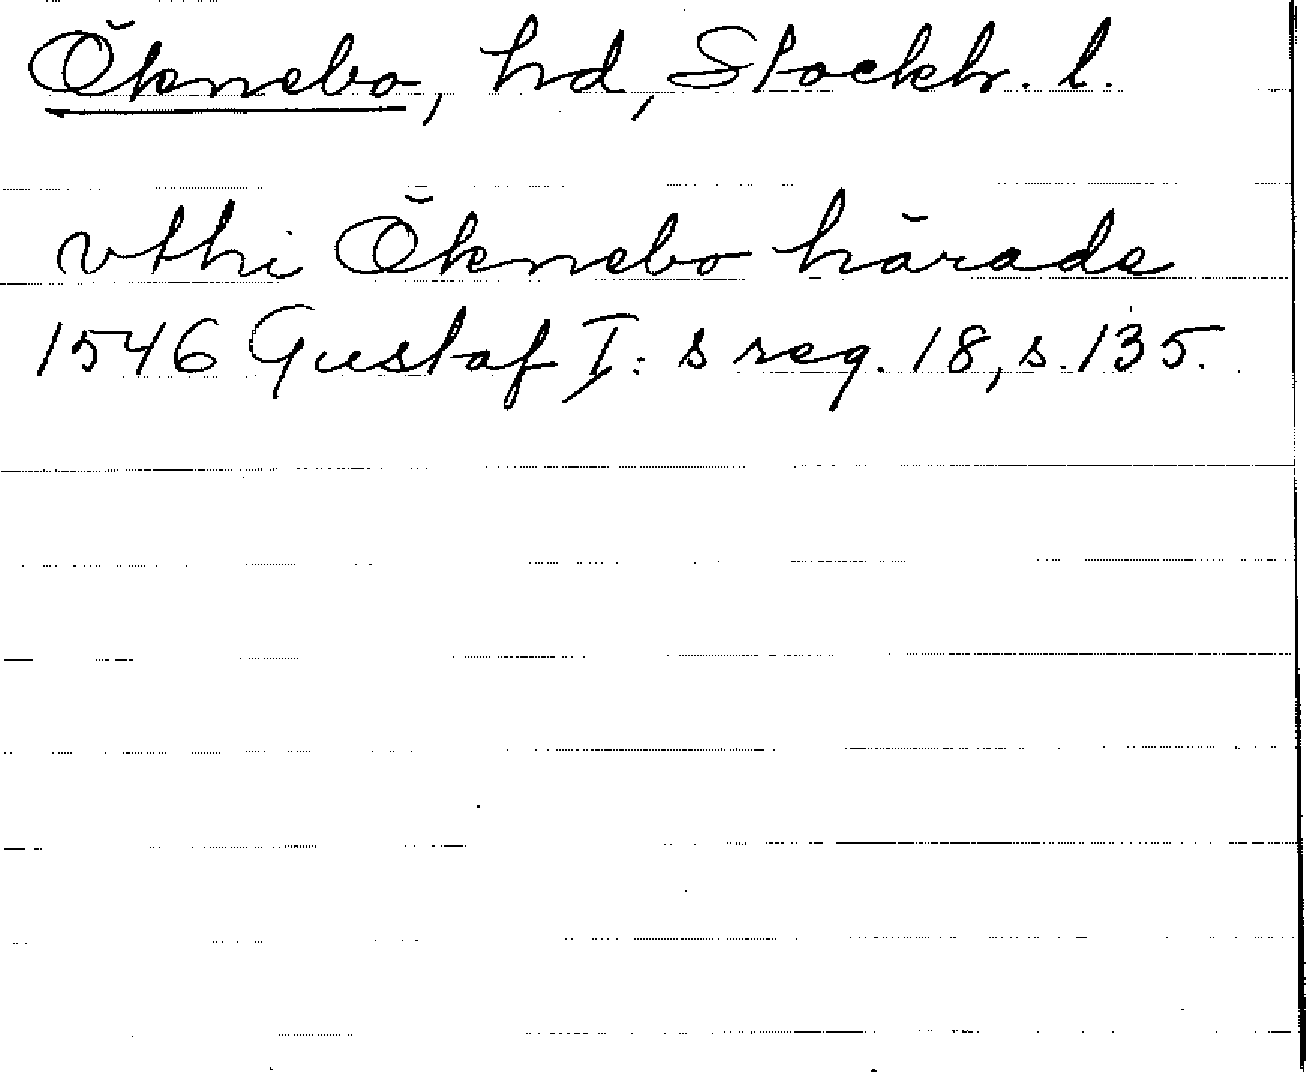 Öknebo, hd, Stockh. l.
vthi Öknebo härade
1546 Gustaf I: s reg. 18, s. 135.